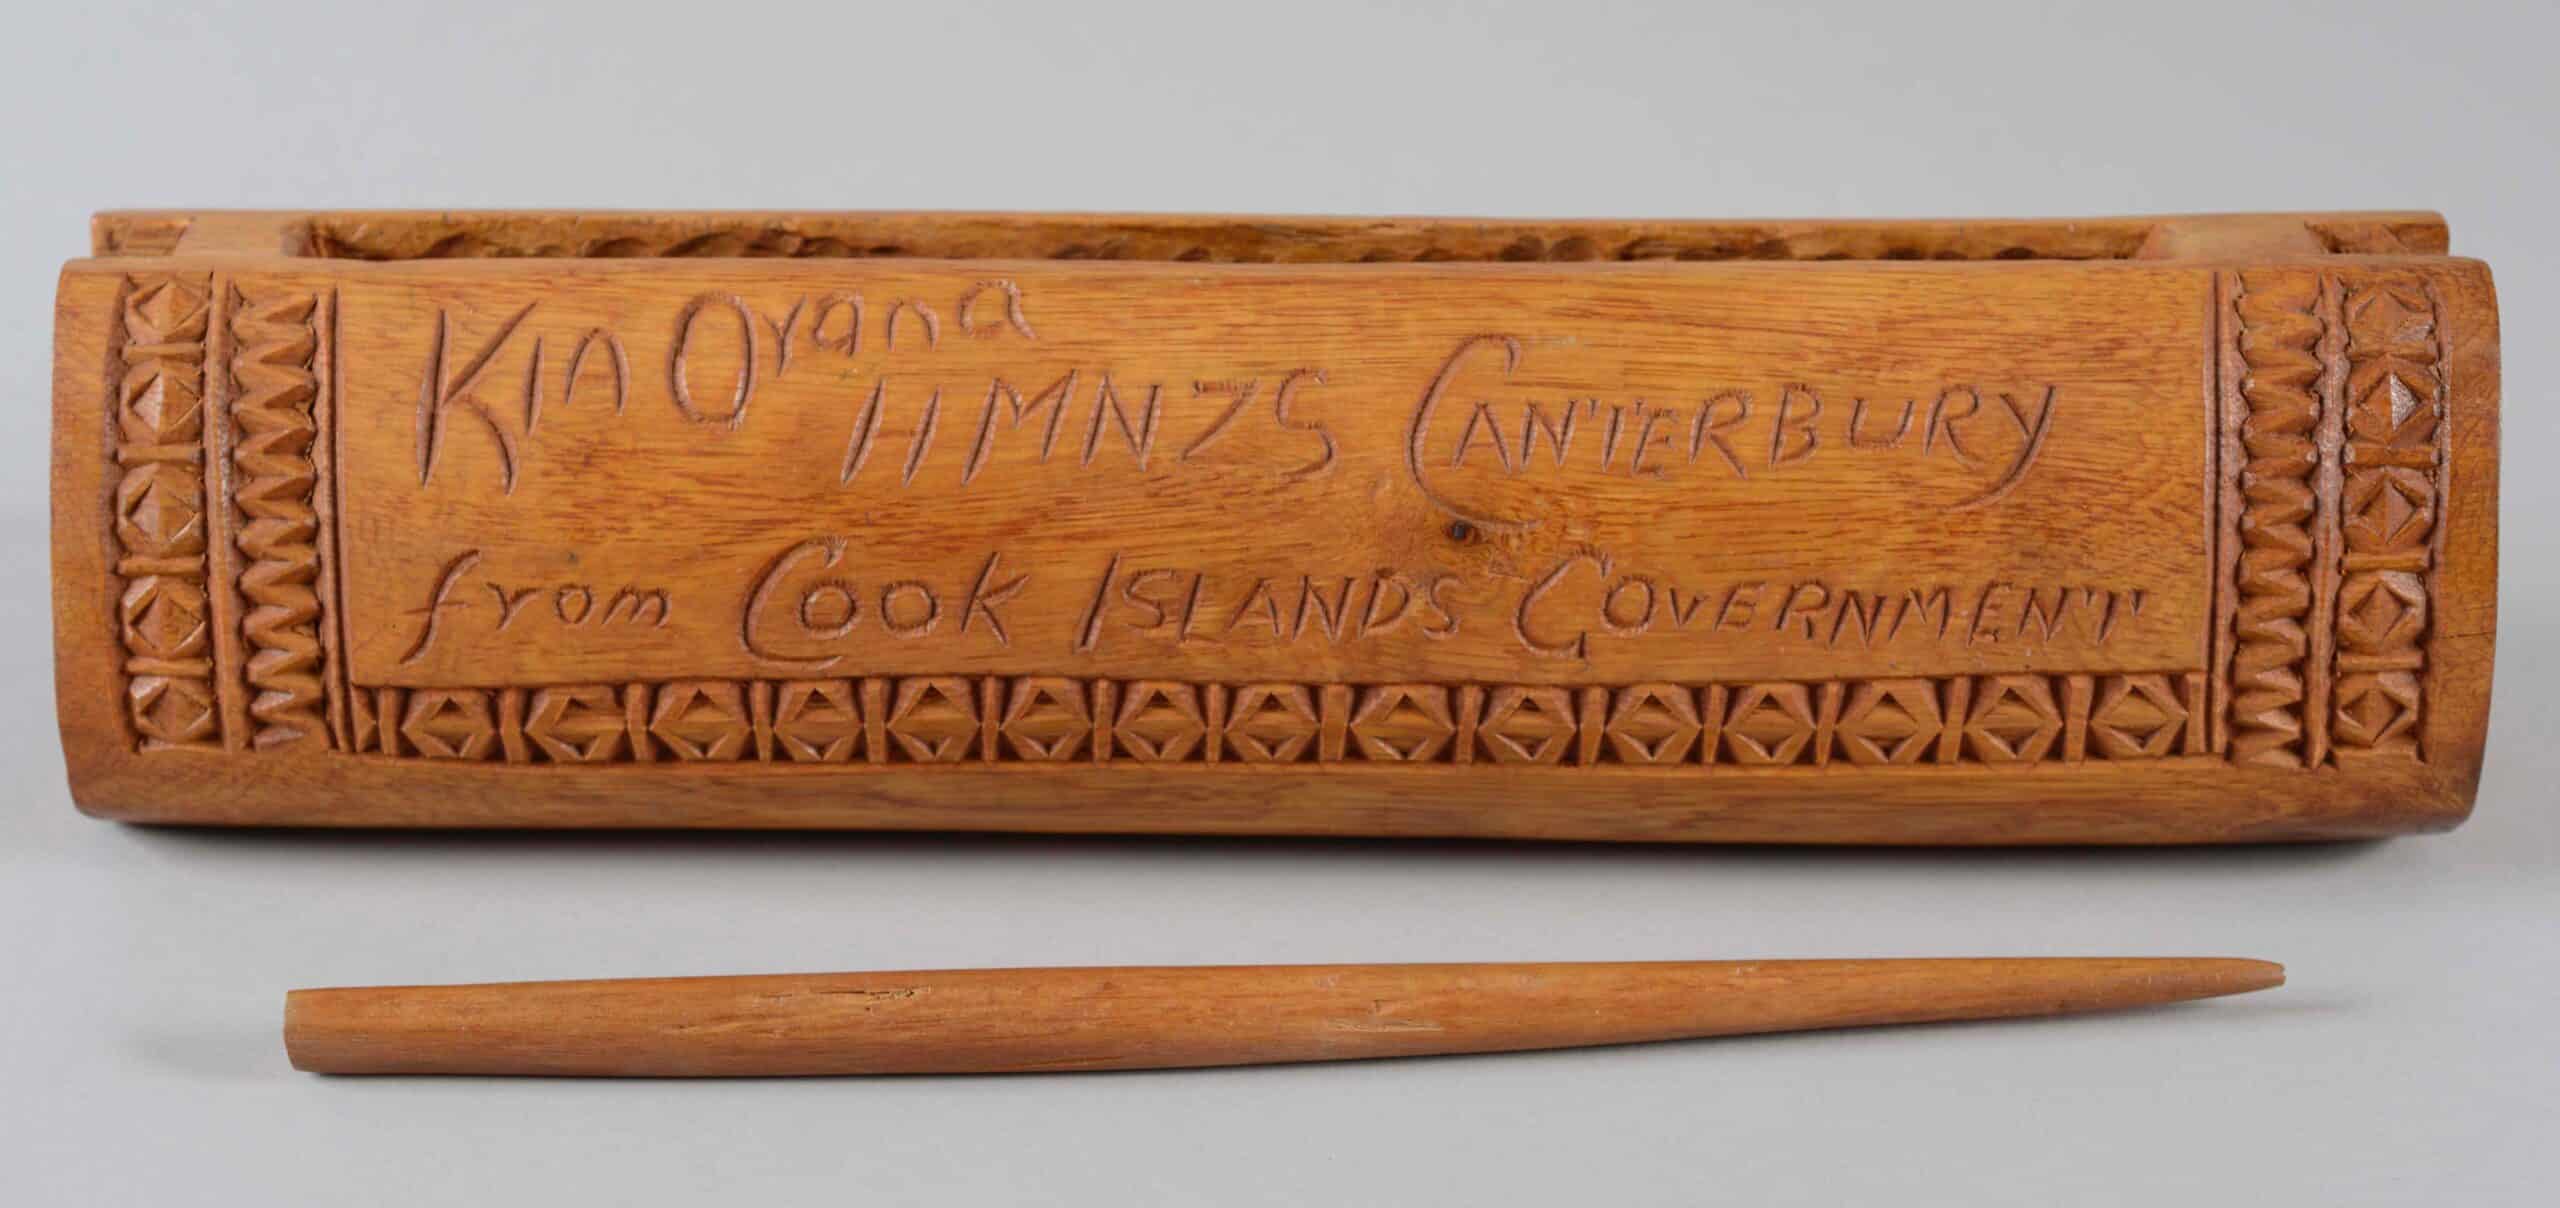 Kia Orana
HMNZS CANTERBURY
from COOK ISLANDS GOVERNMENT